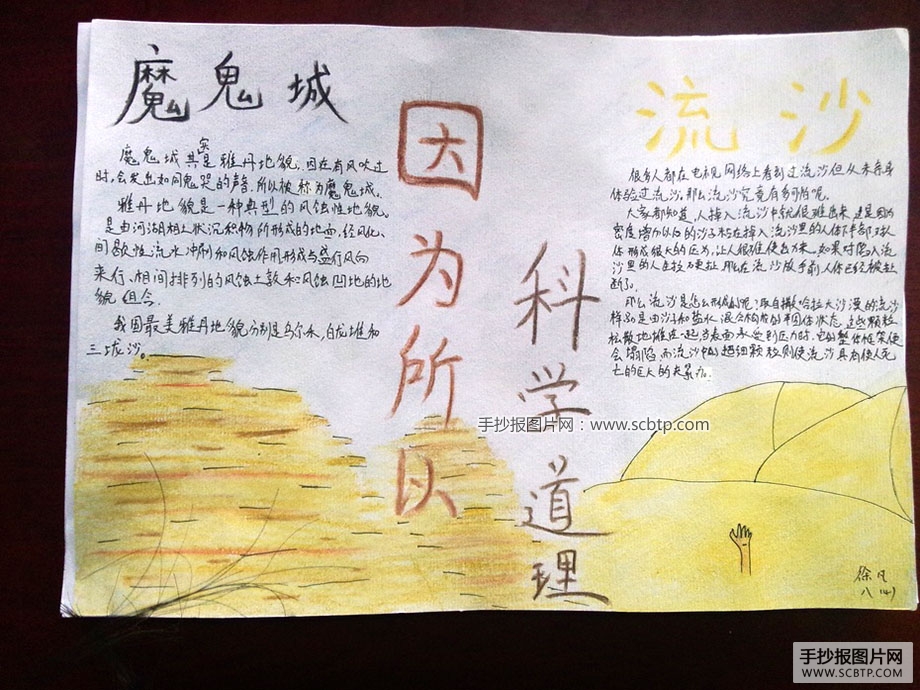 魔鬼城
魔鬼城其实是雅丹地貌，因在有风吹过
时，会发出如同鬼哭的声音，所以被称为魔鬼城。
雅丹地貌是一种典型的风蚀性地貌。
是由河湖相土状沉积物所形成的地面，经风化、
间歇性流水冲刷和风蚀作用形成与盛行风向
来行、相间排列的风蚀土墩和风蚀凹地的地
貌组合。
我国最美雅丹地貌分别是乌尔禾、白龙堆和
三垅沙。
因为所以
科学道理
流沙
很多人都在电视、网络上看到过流沙但从未亲身
体验过流沙。那么流沙究竟有多可怕呢。
大家都知道，人掉入流沙中就很难出来，这是因为
密度增加以后的沙子粘在掉入流沙里的人体下半部，对人
体形成很大的压力，让人很难使出力来。如果对陷入流
沙里的人生拉硬扯，那么在流沙放手前人体已经被扯
断了。
那么流沙是怎么形成的呢？取自撒哈拉大沙漠的流沙
样品是由沙子和盐水混合构成的半固体状态。这些颗粒
松散地堆在一起，当表面承受到压力时，它的整体框架便
会塌陷，而流沙中的超细颗粒则使流沙具有使人死
亡的巨大的夹紧力。
手抄报图片网：www.scbtp.com
徐凡
八（4）
手抄报图片网
WWW.SCBTP.COM